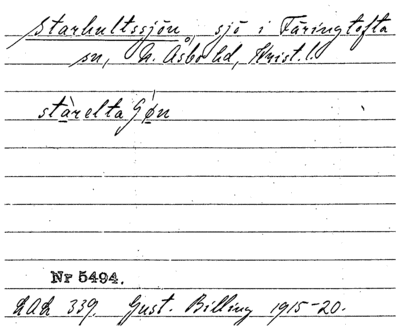 Starhultssjön, sjö i Färingtofta
sn, N. Åsbo hd, Krist. l.
stàrelta ſǿn
Nr 5494.
LAL 339. Gust. Billing 1915-20.